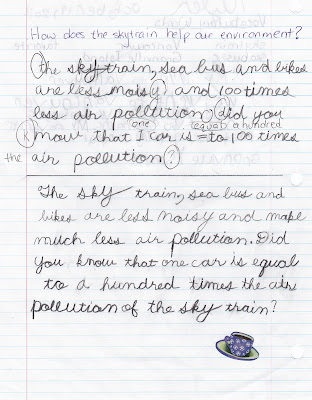 How does the skytrain help air environment?
the skytrain, sea bus and bikes
are less noisy and 100 times
less air polltution. did you
one equal a hundred
Know that 1 car is = to 100 times
the air pollution?
The sky train, sea bus and
bikes are less noisy and make
much less air pollution. Did
you know that one car is equal
to a hundred times the air
pollution of the sky train?